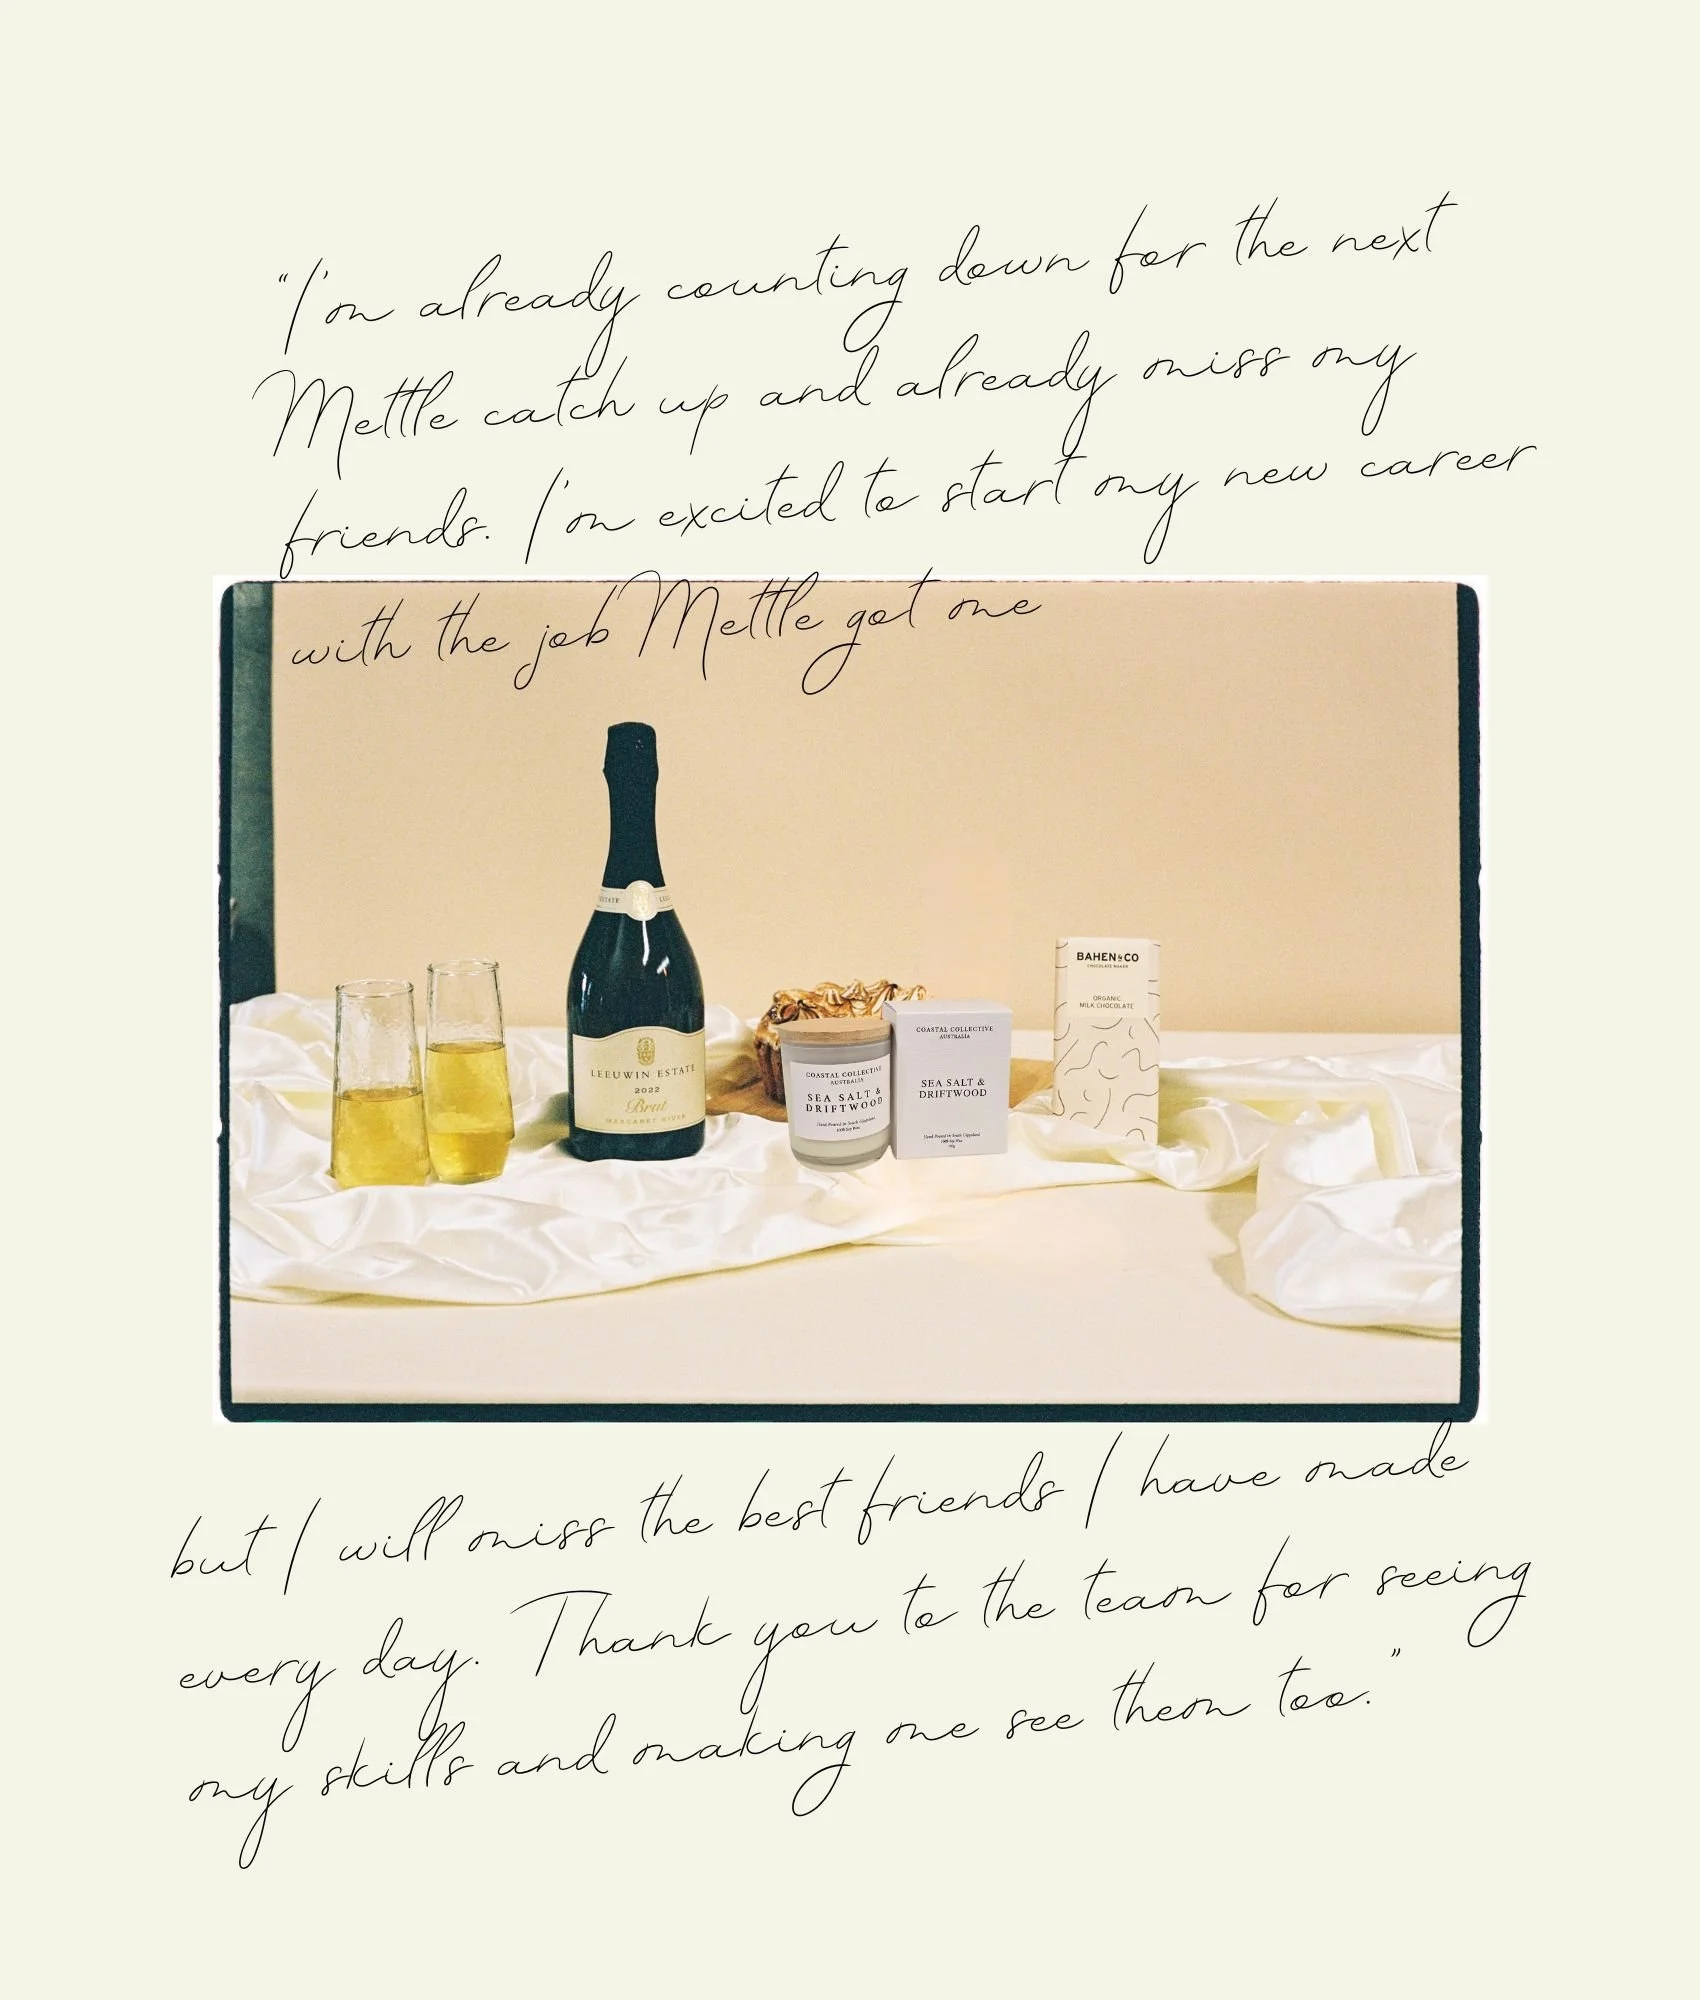 “I'm already counting down for the next
Mettle catch up and already miss my
friends. I'm excited to start my new career
with the job Mettle got me
ESTATE
LEEUWIN ESTATE
2022
Brut
MARGARET RIVER
COASTAL COLLECTIVE
AUSTRALIA
SEA SALT &
DRIFTWOOD
Hand Poured in South Gippsland
100% Soy Wax
COASTAL COLLECTIVE
AUSTRALIA
SEA SALT &
DRIFTWOOD
Hand Poured in South Gippsland
100% Soy Wax
BAHEN & CO
CHOCOLATE MAKER
ORGANIC
MILK CHOCOLATE
but I will miss the best friends I have made
every day. Thank you to the team for seeing
my skills and making me see them too.”